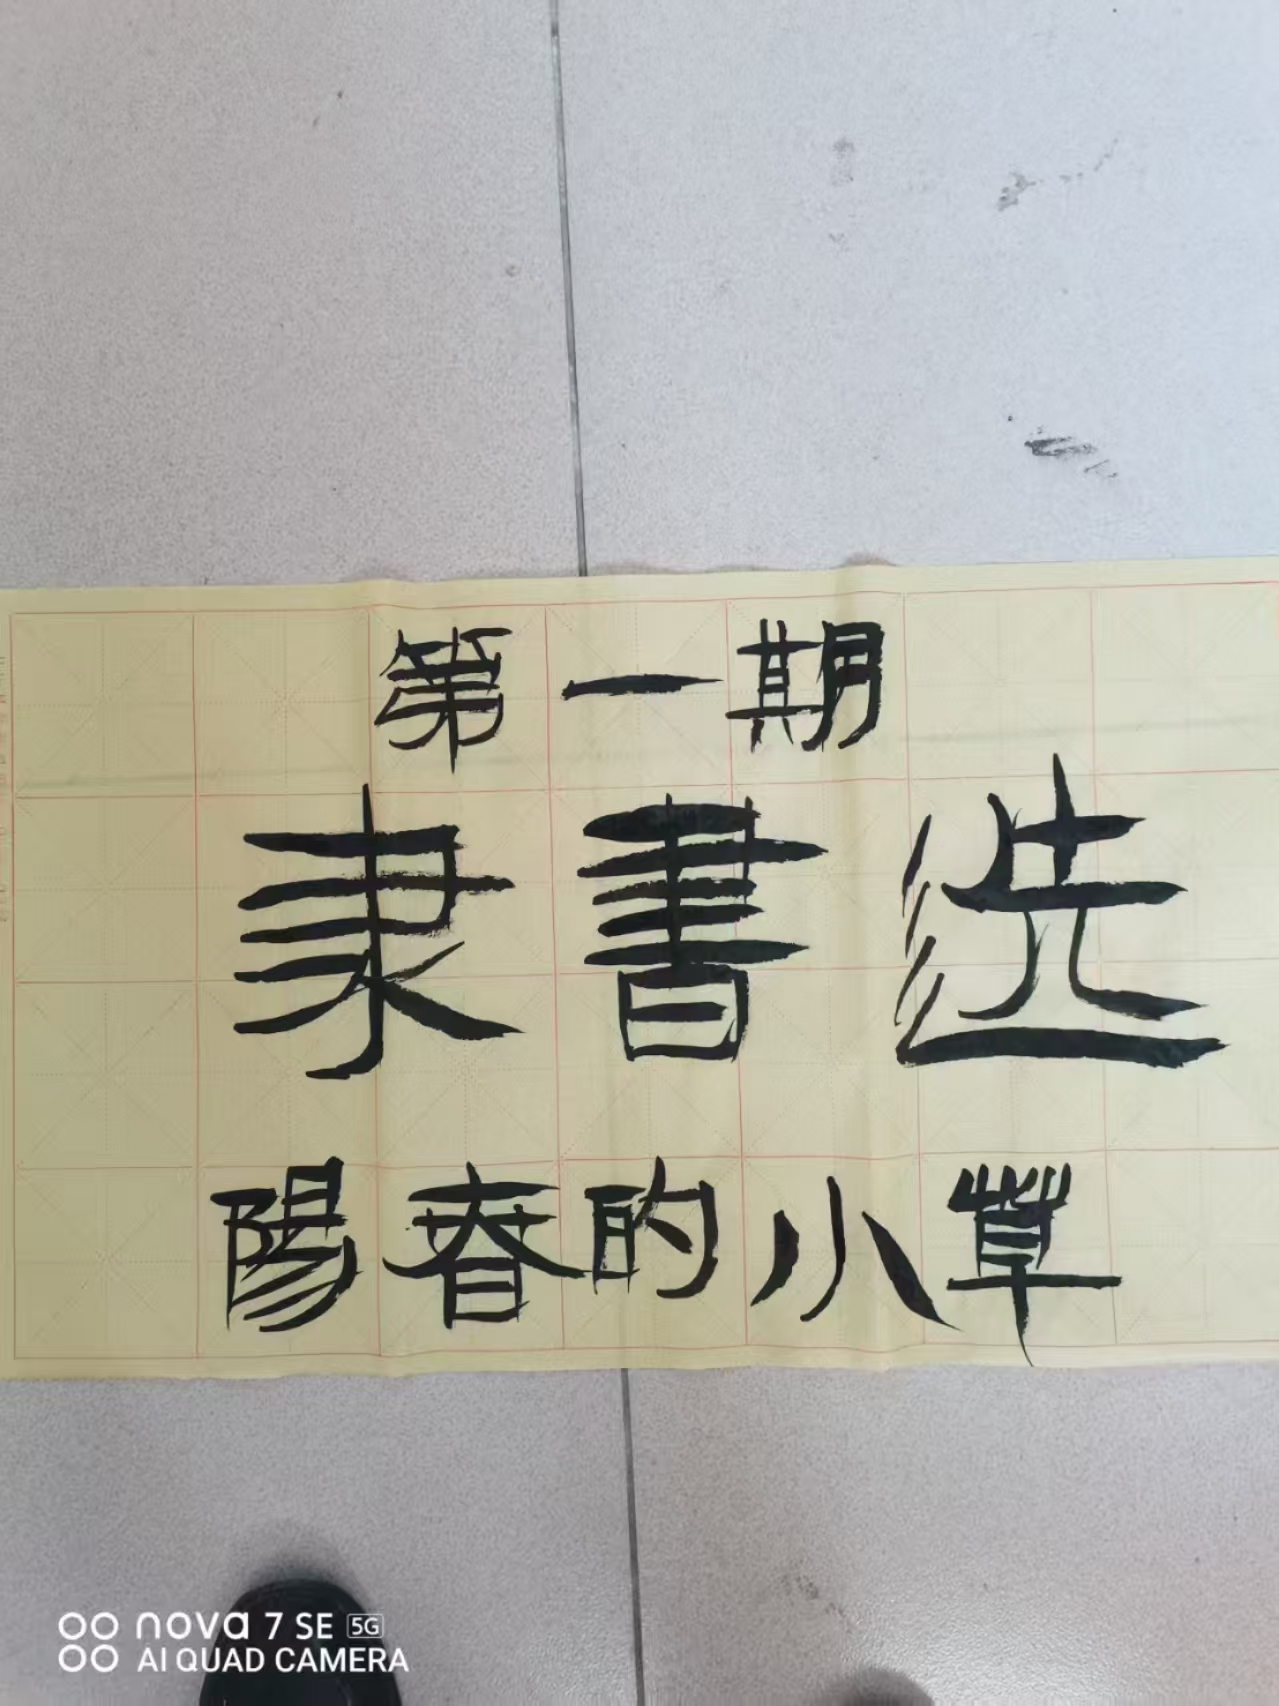 第一期
隶書选
陽春的小草
nova 7 SE 5G
AI QUAD CAMERA